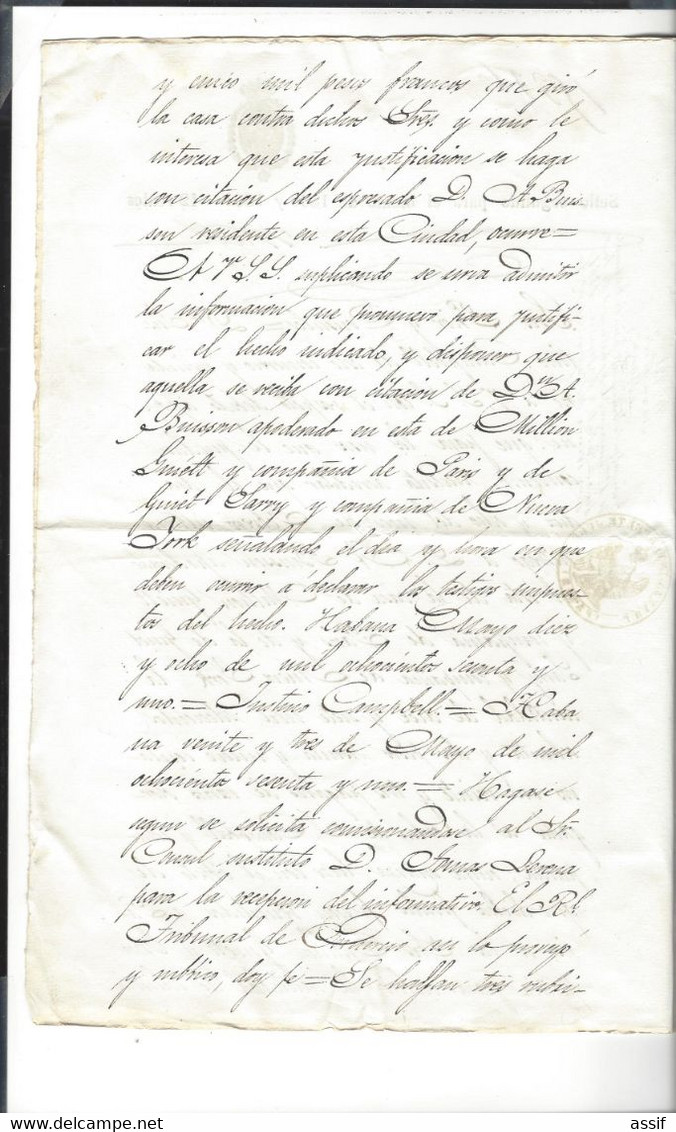 y cinco mil pesos francos, que giró
la casa contra dichos Sres. y como le
interesa que esta justificacion se haga
con citacion del espresado D. A. Buis
son residente en esta Ciudad, ocurre=
A V.S.S. suplicando se sirva admitir
la informacion que promuevo para justifi-
car el hecho indicado, y disponer que
aquella se reciba con citacion de Dn A.
Buisson apoderado en esta de Million
Guiétt y compañia de Paris y de
Guiet Sarry y compañia de Nueva
York señalando el dia y hora en que
deben ocurrir a declarar los testigos impues-
tos del hecho. Habana Mayo diez
y ocho de mil ochocientos sesenta y
uno.= Justino Campbell.= Haba
na veinte y tres de Mayo de mil
ochocientos sesenta y uno.= Hagase
segun se solicita comisionandose al Sr.
Consul sustituto D. Tomas
para la recepcion del informativo. El Rl.
Tribunal de Comercio asi lo proveyó
y rubrico, doy fe= Se hallan tres rubri-
assif